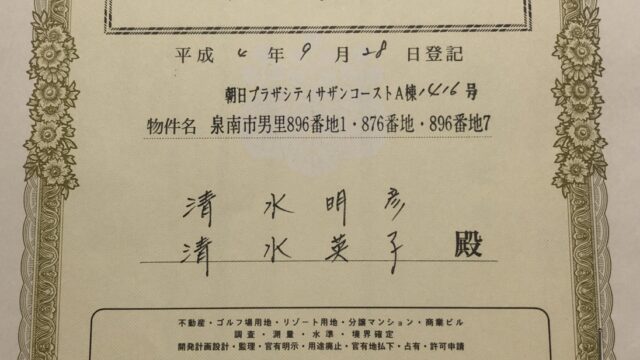 平成4年9月28日登記
朝日プラザシティサザンコーストA棟1416号
物件名 泉南市男里896番地1・876番地・896番地7
清水明彦
清水英子 殿
不動産・ゴルフ場用地・リゾート用地・分譲マンション・商業ビル
調査・測量・水準・境界確定
開発計画設計・監理・官有明示・用途廃止・官有地払下・占有・許可申請